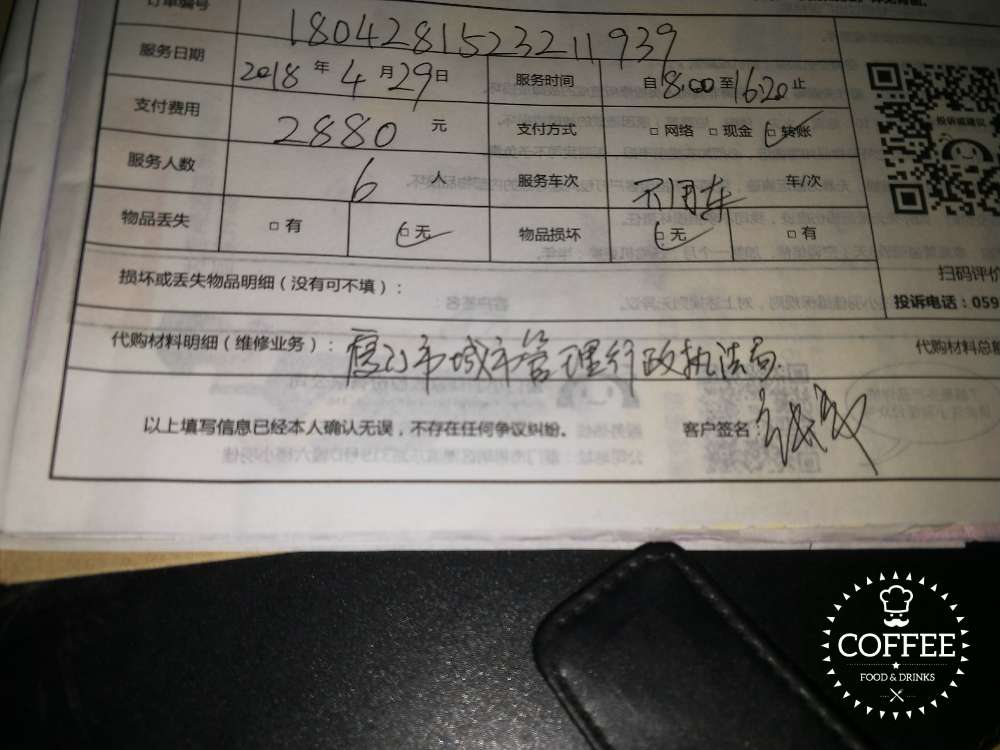 订单编号 1804281523211939
服务日期 2018年4月29日 服务时间 自8:00至16:20止
支付费用 2880元 支付方式 □网络 □现金 □转账
投诉或建议
服务人数 6人 服务车次 不用车 车/次
物品丢失 □有 □无 物品损坏 □无 □有
损坏或丢失物品明细（没有可不填）： 扫码评价
投诉电话：059
代购材料明细（维修业务）： 厦门市城市管理行政执法局 代购材料总额
以上填写信息已经本人确认无误，不存在任何争议纠纷。 客户签名：
COFFEE
FOOD & DRINKS